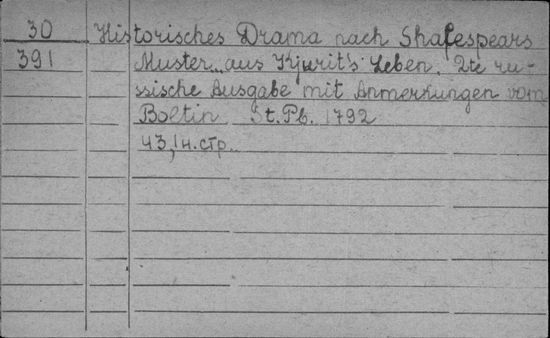 30 Historisches Drama nach Shakespears
391 Muster aus Kjurit's Leben. 2te ru-
ssische Ausgabe mit Anmerkungen vom
Boltin St.Pb. 1792
43, 1н.стр.